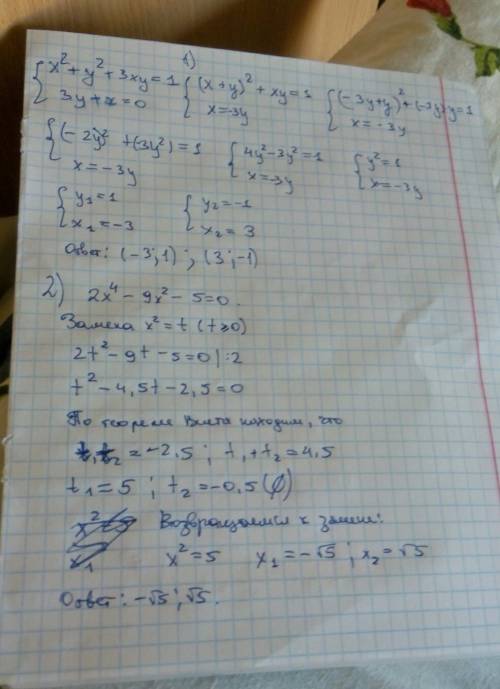 1)
{x²+y²+3xy=1 {(x+y)²+xy=1 {(-3y+y)²+(-3y)y=1
{3y+x=0 {x=-3y {x=-3y
{(-2y)²+(-3y²)=1 {4y²-3y²=1 {y²=1
{x=-3y {x=-3y {x=-3y
{y₁=1 {y₂=-1
{x₁=-3 {x₂=3
Ответ: (-3;1);(3;-1)
2) 2x⁴-9x²-5=0.
Замена x²=t (t≥0)
2t²-9t-5=0|:2
t²-4,5t-2,5=0
По теореме Виета находим, что
t₁t₂=-2,5; t₁+t₂=4,5
t₁=5; t₂=-0,5(∅)
Возвращаемся к замене:
x²=5 x₁=-√5; x₂=√5
Ответ: -√5;√5.